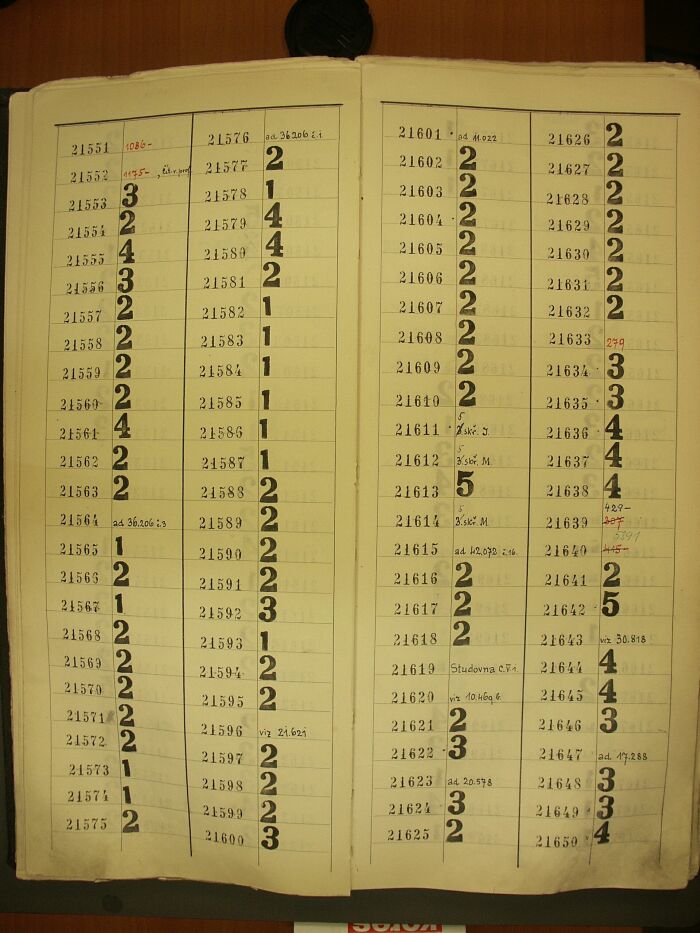 21551 1086-
21552 1175-
21553 3
21554 2
21555 4
21556 3
21557 2
21558 2
21559 2
21560 2
21561 4
21562 2
21563 2
21564 ad 36.206 č.3
21565 1
21566 2
21567 1
21568 2
21569 2
21570 2
21571 2
21572 2
21573 1
21574 1
21575 2
21576 ad 36.206 č.1.
21577 2
21578 1
21579 4
21580 4
21581 2
21582 1
21583 1
21584 1
21585 1
21586 1
21587 1
21588 2
21589 2
21590 2
21591 2
21592 3
21593 1
21594 2
21595 2
21596 viz 21.621
21597 2
21598 2
21599 2
21600 3
21601 ad 11.022
21602 2
21603 2
21604 2
21605 2
21606 2
21607 2
21608 2
21609 2
21610 2
5
21611 3.skř. I.
5
21612 3.skř. M.
21613 5
5
21614 3.skř. M
21615 ad 42.072 č.16.
21616 2
21617 2
21618 2
21619 Studovna Č.V1.
21620 viz 10.469
21621 2
21622 3
21623 ad 20.578
21624 3
21625 2
21626 2
21627 2
21628 2
21629 2
21630 2
21631 2
21632 2
21633 279
21634 3
21635 3
21636 4
21637 4
21638 4
429-
21639 207
5391
21640 415-
21641 2
21642 5
21643 viz 30.818
21644 4
21645 4
21646 3
21647 ad 17.288
21648 3
21649 3
21650 4